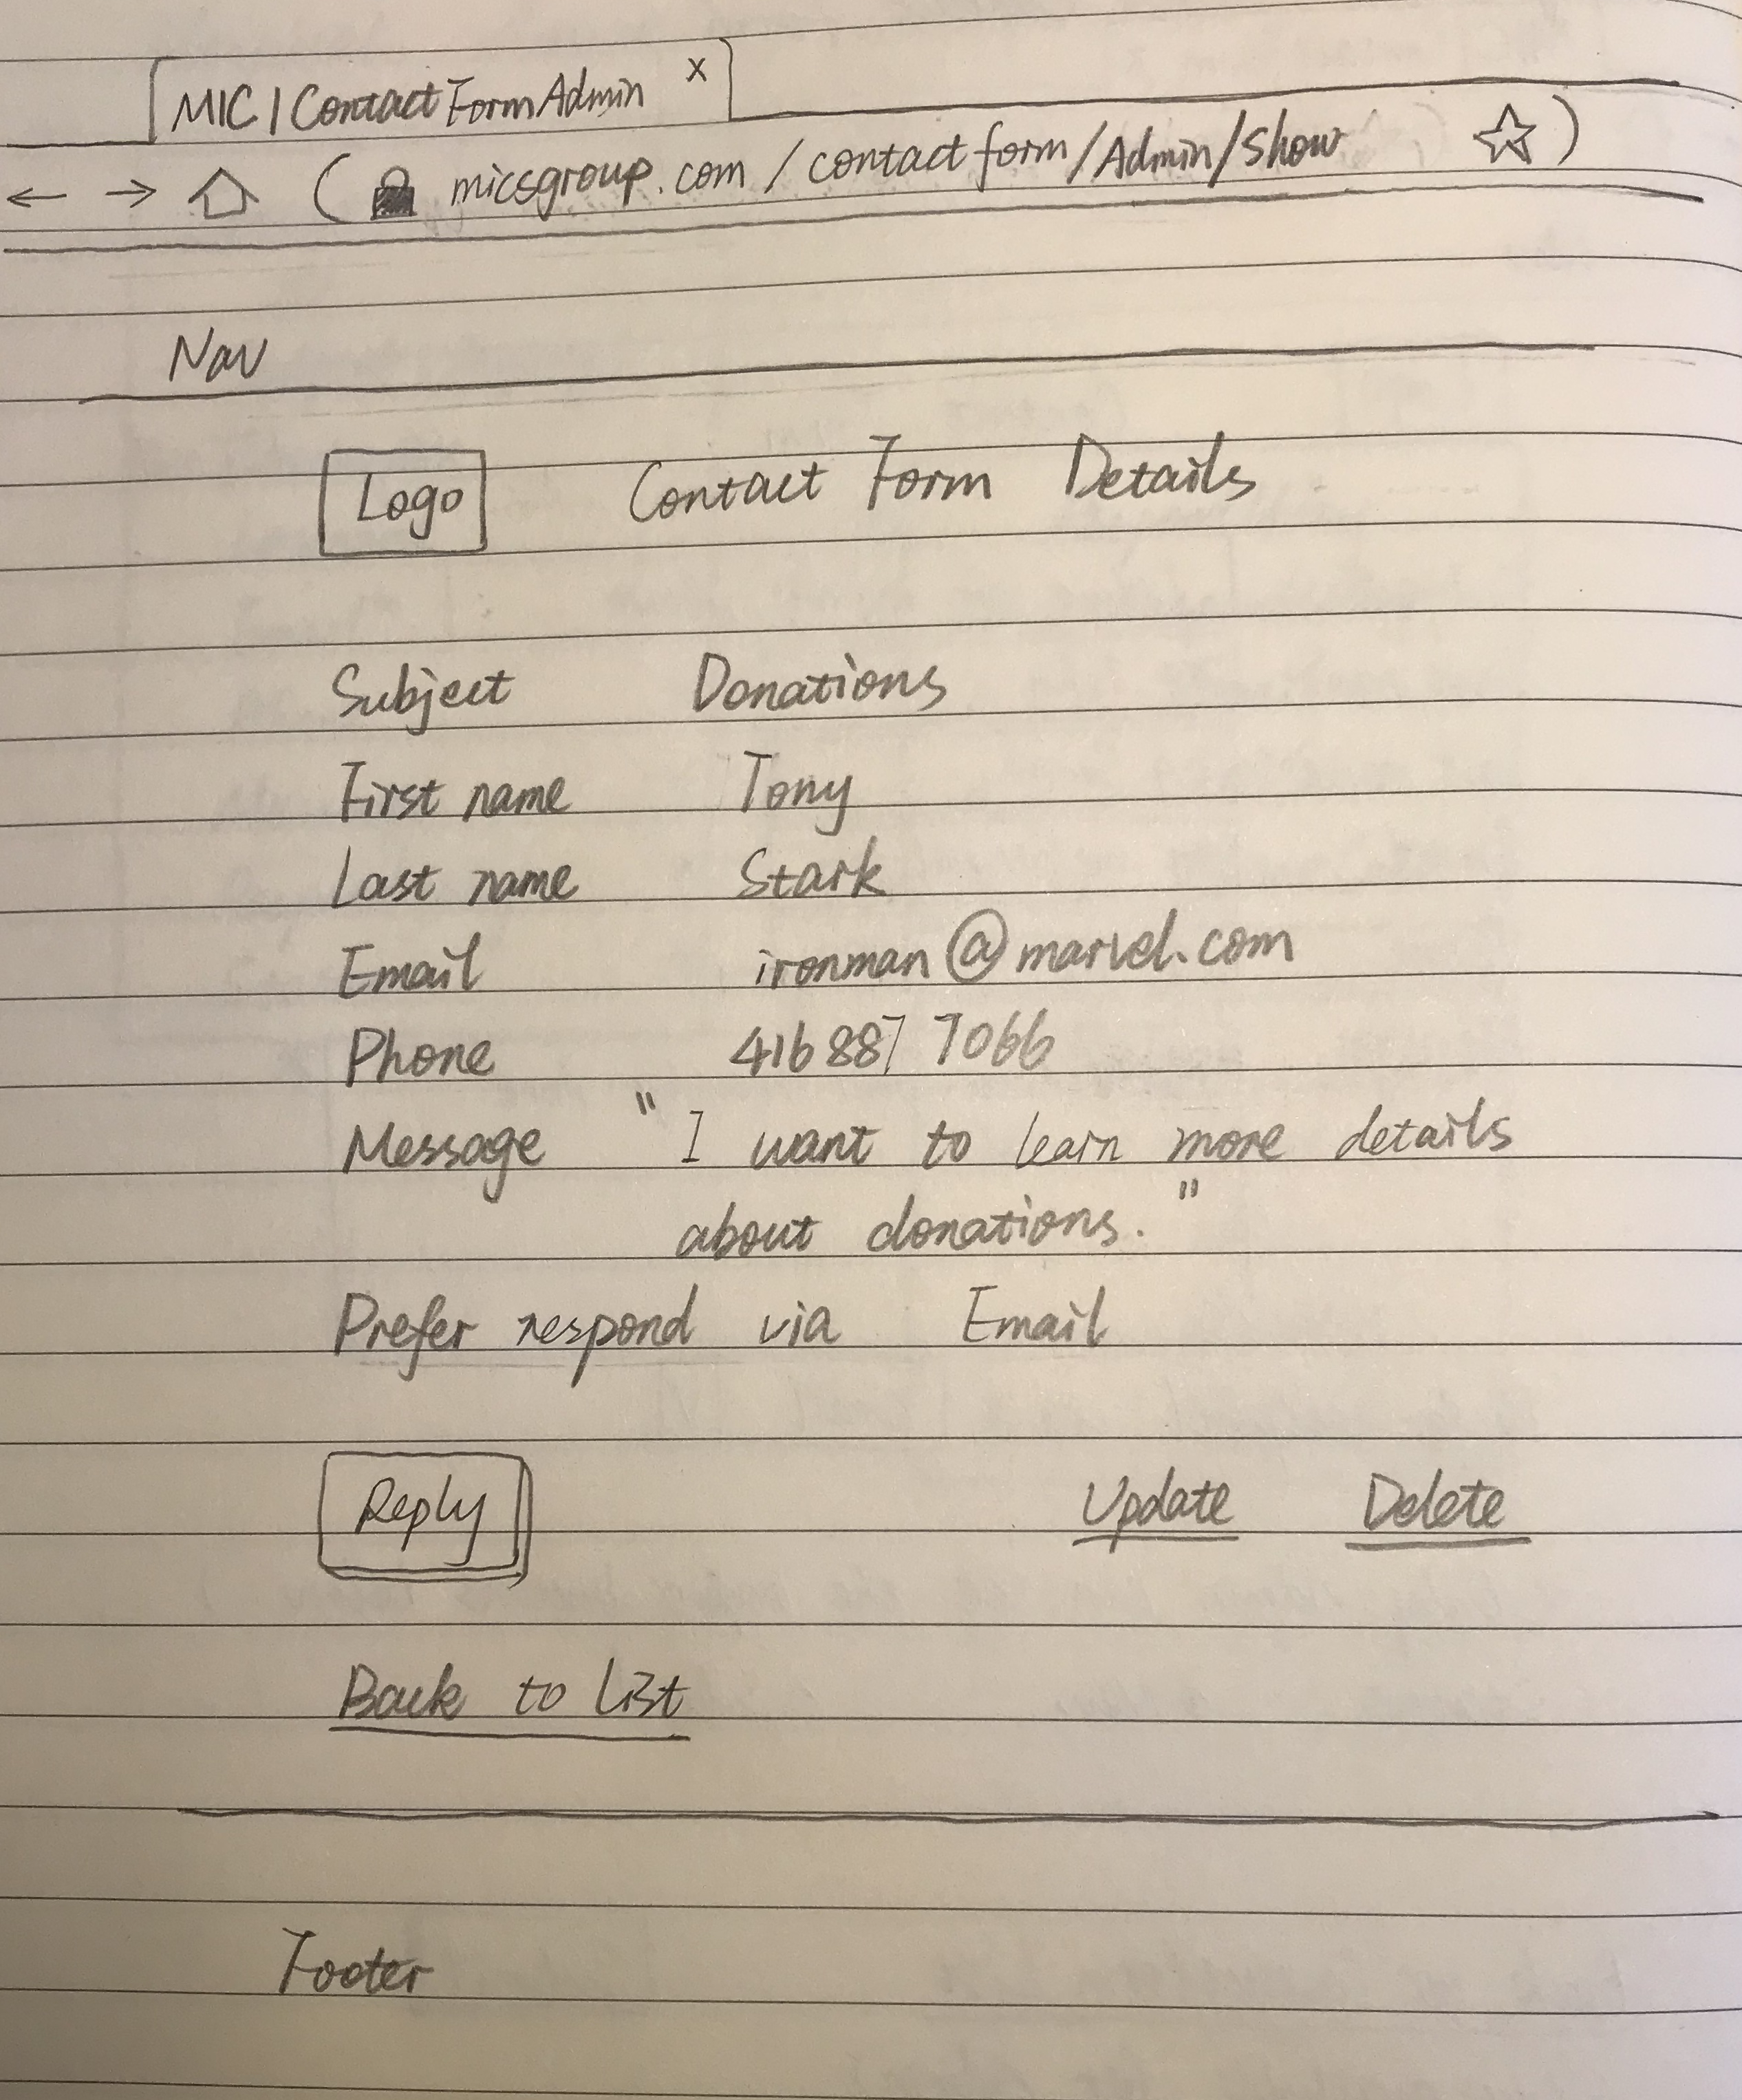 MIC | Contact Form Admin x
micsgroup.com / contact form / Admin / Show
Nav
Logo Contact Form Details
Subject Donations
First name Tony
Last name Stark
Email ironman@marvel.com
Phone 416 887 7066
Message " I want to learn more details
about donations. "
Prefer respond via Email
Reply Update Delete
Back to list
Footer